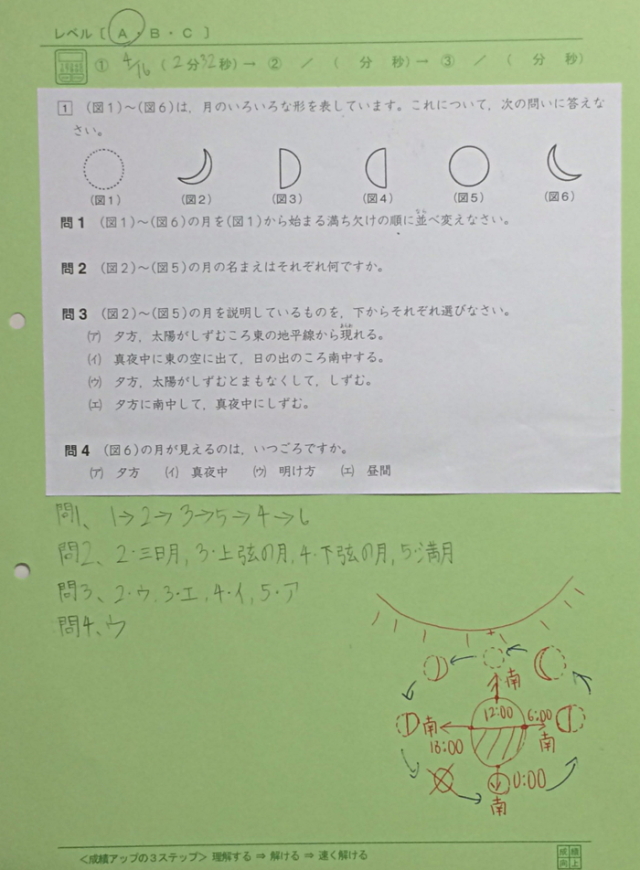 レベル〔 A・B・C 〕
① 4/16 (2分32秒)→ ② / ( 分 秒)→ ③ / ( 分 秒)
1 (図1)~(図6)は,月のいろいろな形を表しています。これについて,次の問いに答えな
さい。
(図1) (図2) (図3) (図4) (図5) (図6)
問1 (図1)~(図6)の月を(図1)から始まる満ち欠けの順に並べ変えなさい。
問2 (図2)~(図5)の月の名まえはそれぞれ何ですか。
問3 (図2)~(図5)の月を説明しているものを,下からそれぞれ選びなさい。
(ア) 夕方,太陽がしずむころ東の地平線から現れる。
(イ) 真夜中に東の空に出て,日の出のころ南中する。
(ウ) 夕方,太陽がしずむとまもなくして,しずむ。
(エ) 夕方に南中して,真夜中にしずむ。
問4 (図6)の月が見えるのは,いつごろですか。
(ア) 夕方 (イ) 真夜中 (ウ) 明け方 (エ) 昼間
問1、1→2→3→5→4→6
問2、2・三日月,3・上弦の月,4・下弦の月,5・満月
問3、2・ウ,3・エ,4・イ,5・ア
問4、ウ
南
12:00 6:00
南
18:00 南
0:00
南
<成績アップの3ステップ> 理解する ⇒ 解ける ⇒ 速く解ける
成績
向上